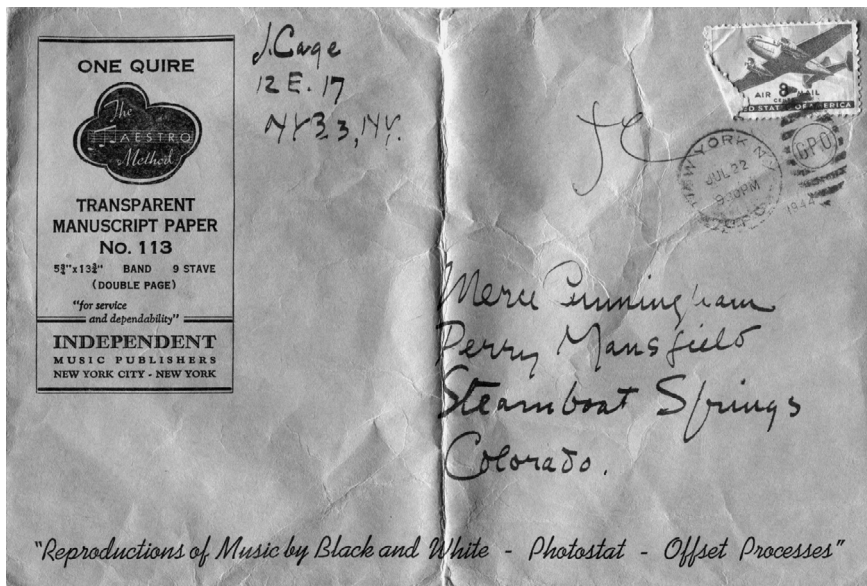 ONE QUIRE
The
MAESTRO
Method
TRANSPARENT
MANUSCRIPT PAPER
No. 113
5¾"x13¾" BAND 9 STAVE
(DOUBLE PAGE)
"for service
and dependability"
INDEPENDENT
MUSIC PUBLISHERS
NEW YORK CITY - NEW YORK
J. Cage
12 E. 17
NY 3 3, NY.
AIR 8 MAIL
CENTS
ED STATES OF AMERICA
JC
NEW YORK N.Y.
JUL 22
9 30 PM
1944
G.P.O.
Merce Cunningham
Perry Mansfield
Steamboat Springs
Colorado.
"Reproductions of Music by Black and White - Photostat - Offset Processes"